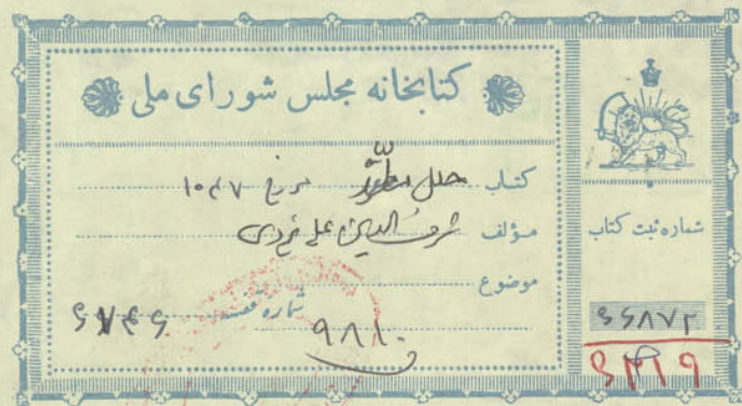 کتابخانه مجلس شورای ملی
کتاب حلل مطرز مورخ ۱۰۴۷
مؤلف شرف الدین علی یزدی
موضوع
شماره قفسه ۶۷۴۶
۹۸۱۰
شماره ثبت کتاب
۶۶۸۷۲